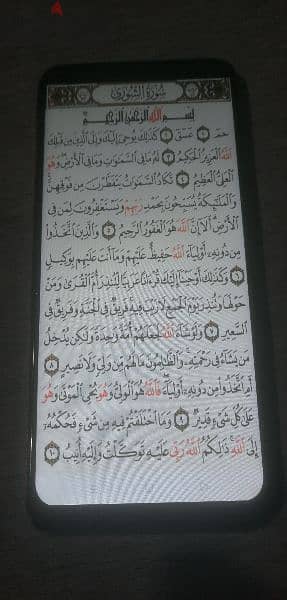 سورة الشورى
بسم الله الرحمن الرحيم
حمٓ ١ عٓسٓقٓ ٢ كَذَٰلِكَ يُوحِىٓ إِلَيْكَ وَإِلَى ٱلَّذِينَ مِن قَبْلِكَ
ٱللَّهُ ٱلْعَزِيزُ ٱلْحَكِيمُ ٣ لَهُۥ مَا فِى ٱلسَّمَٰوَٰتِ وَمَا فِى ٱلْأَرْضِ وَهُوَ
ٱلْعَلِىُّ ٱلْعَظِيمُ ٤ تَكَادُ ٱلسَّمَٰوَٰتُ يَتَفَطَّرْنَ مِن فَوْقِهِنَّ
وَٱلْمَلَٰٓئِكَةُ يُسَبِّحُونَ بِحَمْدِ رَبِّهِمْ وَيَسْتَغْفِرُونَ لِمَن فِى
ٱلْأَرْضِ أَلَآ إِنَّ ٱللَّهَ هُوَ ٱلْغَفُورُ ٱلرَّحِيمُ ٥ وَٱلَّذِينَ ٱتَّخَذُوا۟
مِن دُونِهِۦٓ أَوْلِيَآءَ ٱللَّهُ حَفِيظٌ عَلَيْهِمْ وَمَآ أَنتَ عَلَيْهِم بِوَكِيلٍ
٦ وَكَذَٰلِكَ أَوْحَيْنَآ إِلَيْكَ قُرْءَانًا عَرَبِيًّا لِّتُنذِرَ أُمَّ ٱلْقُرَىٰ وَمَنْ
حَوْلَهَا وَتُنذِرَ يَوْمَ ٱلْجَمْعِ لَا رَيْبَ فِيهِ فَرِيقٌ فِى ٱلْجَنَّةِ وَفَرِيقٌ فِى
ٱلسَّعِيرِ ٧ وَلَوْ شَآءَ ٱللَّهُ لَجَعَلَهُمْ أُمَّةً وَٰحِدَةً وَلَٰكِن يُدْخِلُ
مَن يَشَآءُ فِى رَحْمَتِهِۦ وَٱلظَّٰلِمُونَ مَا لَهُم مِّن وَلِىٍّ وَلَا نَصِيرٍ ٨
أَمِ ٱتَّخَذُوا۟ مِن دُونِهِۦٓ أَوْلِيَآءَ فَٱللَّهُ هُوَ ٱلْوَلِىُّ وَهُوَ يُحْىِ ٱلْمَوْتَىٰ وَهُوَ
عَلَىٰ كُلِّ شَىْءٍ قَدِيرٌ ٩ وَمَا ٱخْتَلَفْتُمْ فِيهِ مِن شَىْءٍ فَحُكْمُهُۥٓ
إِلَى ٱللَّهِ ذَٰلِكُمُ ٱللَّهُ رَبِّى عَلَيْهِ تَوَكَّلْتُ وَإِلَيْهِ أُنِيبُ ١٠